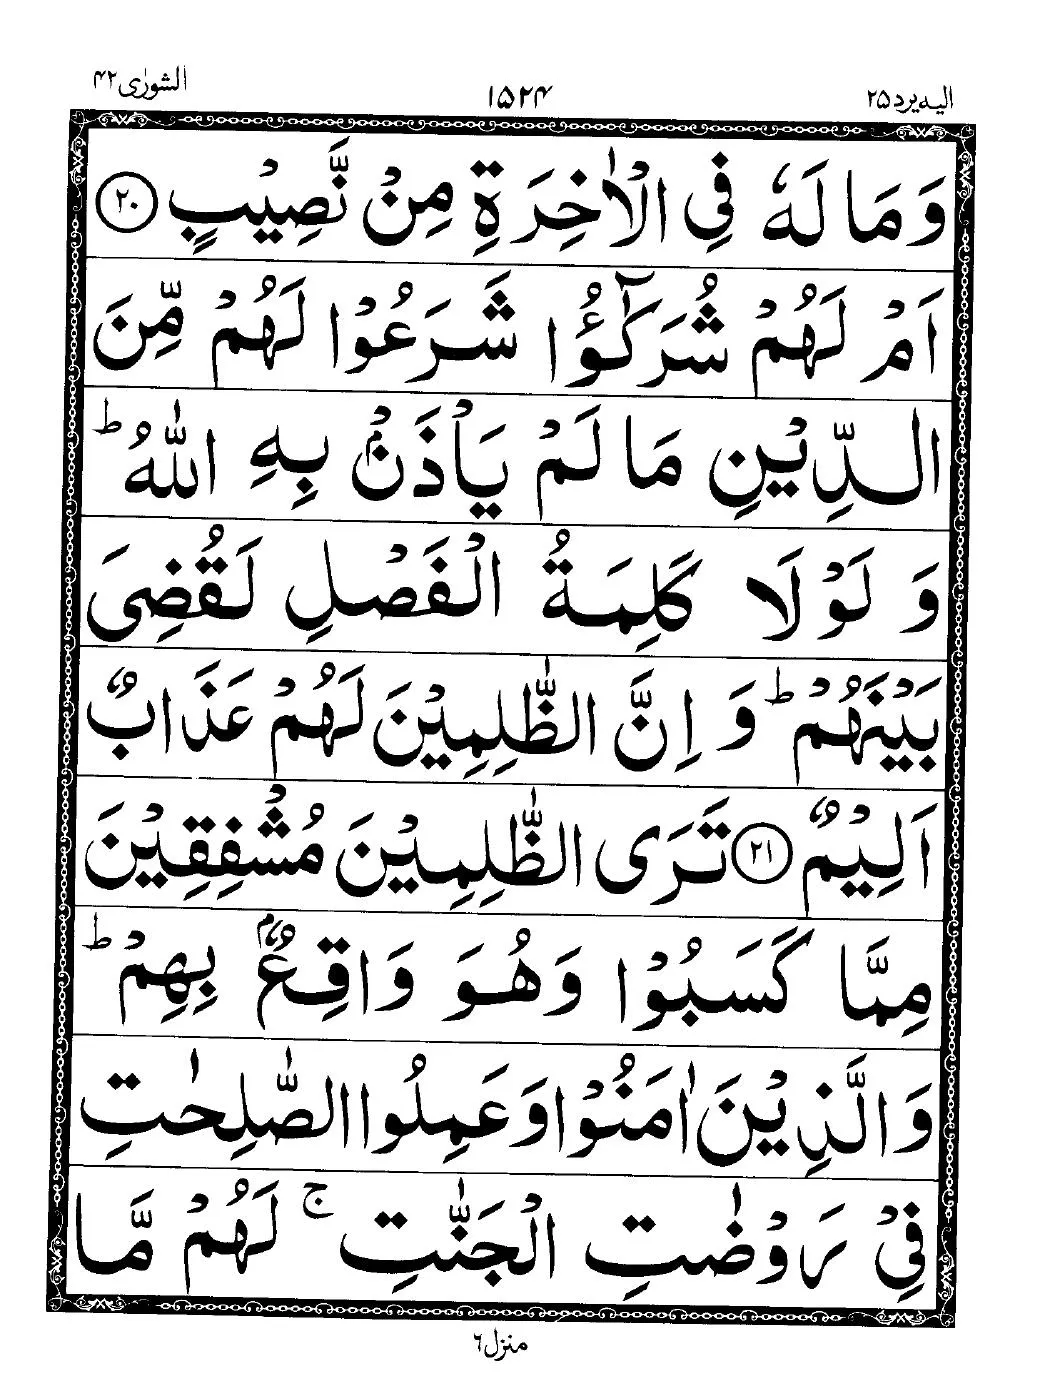 الشورٰی ۴۲
۱۵۲۴
الیه یرد ۲۵
وَمَا لَهٗ فِی الْاٰخِرَةِ مِنْ نَّصِیْبٍ ۲۰
اَمْ لَهُمْ شُرَكٰٓؤُا شَرَعُوْا لَهُمْ مِّنَ
الدِّیْنِ مَا لَمْ یَاْذَنْۢ بِهِ اللّٰهُ ؕ
وَ لَوْلَا كَلِمَةُ الْفَصْلِ لَقُضِیَ
بَیْنَهُمْ ؕ وَ اِنَّ الظّٰلِمِیْنَ لَهُمْ عَذَابٌ
اَلِیْمٌ ۲۱ تَرَی الظّٰلِمِیْنَ مُشْفِقِیْنَ
مِمَّا كَسَبُوْا وَهُوَ وَاقِعٌۢ بِهِمْ ؕ
وَالَّذِیْنَ اٰمَنُوْا وَعَمِلُوا الصّٰلِحٰتِ
فِیْ رَوْضٰتِ الْجَنّٰتِ ۚ لَهُمْ مَّا
منزل ۶